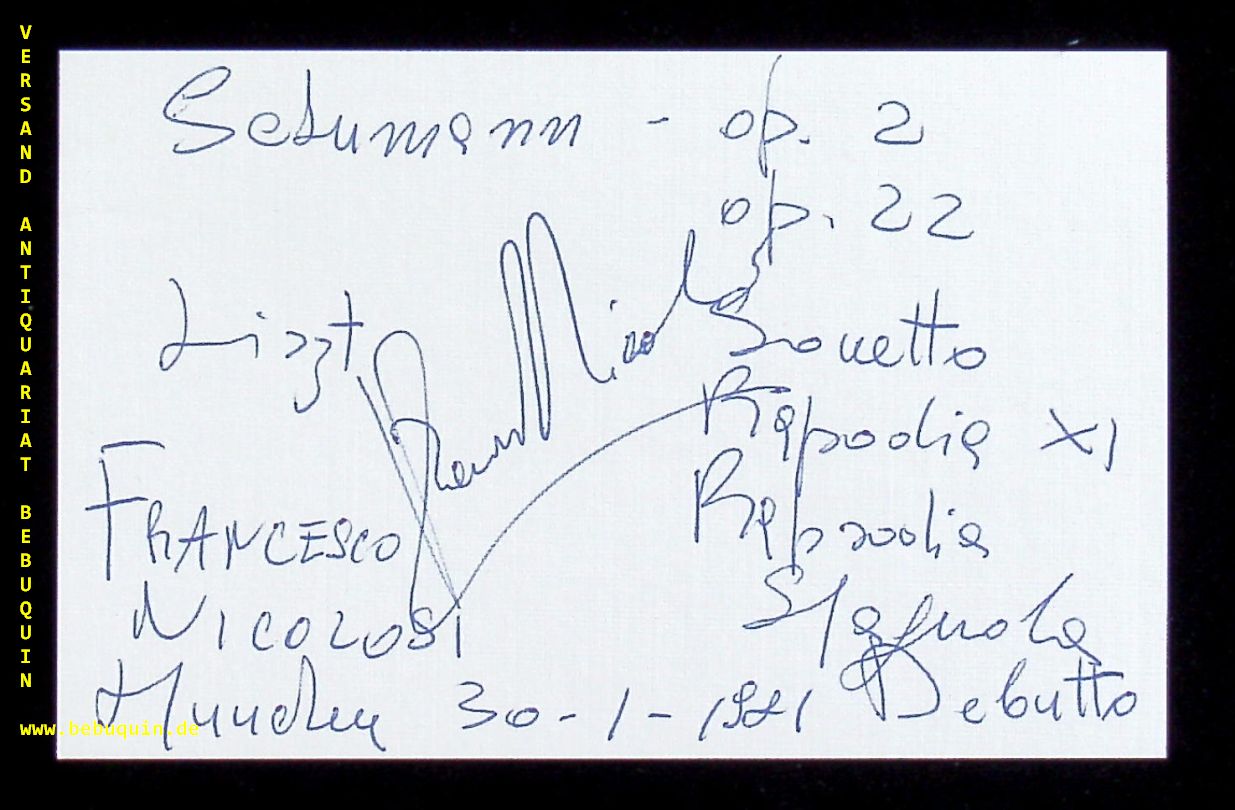 VERSAND ANTIQUARIAT BEBUQUIN
www.bebuquin.de
Schumann - op. 2
op. 22
Liszt Sonetto
Rapsodia XI
Rapsodia
Spagnola
FRANCESCO
NICOLOSI
München 30-1-1981 Debutto